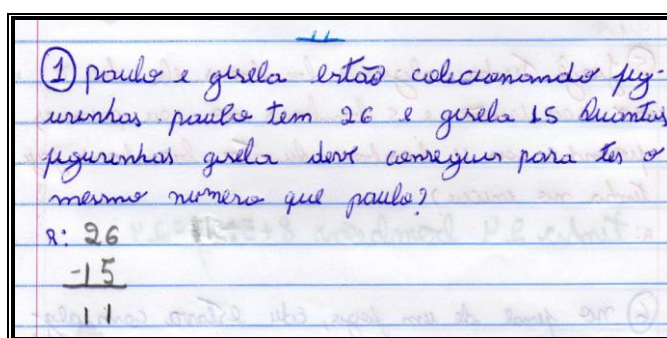 ① paulo e gisela estão colecionando fig-
urinhas. paulo tem 26 e gisela 15 Quantas
figurinhas gisela deve conseguir para ter o
mesmo número que paulo?
R: 26
-15
11